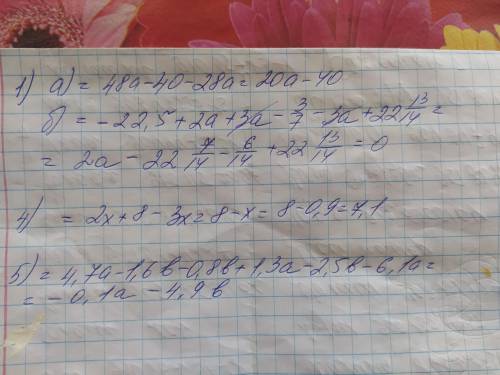 1) а) = 48а-40-28а = 20а-40
б) = -22,5+2а+3а-3/7-3а+22 13/14 =
= 2а-22 7/14-6/14+22 13/14 = 0
4) = 2х+8-3х=8-х=8-0,9=7,1
5) = 4,7а-1,6в-0,8в+1,3а-2,5в-6,1а=
= -0,1а -4,9в